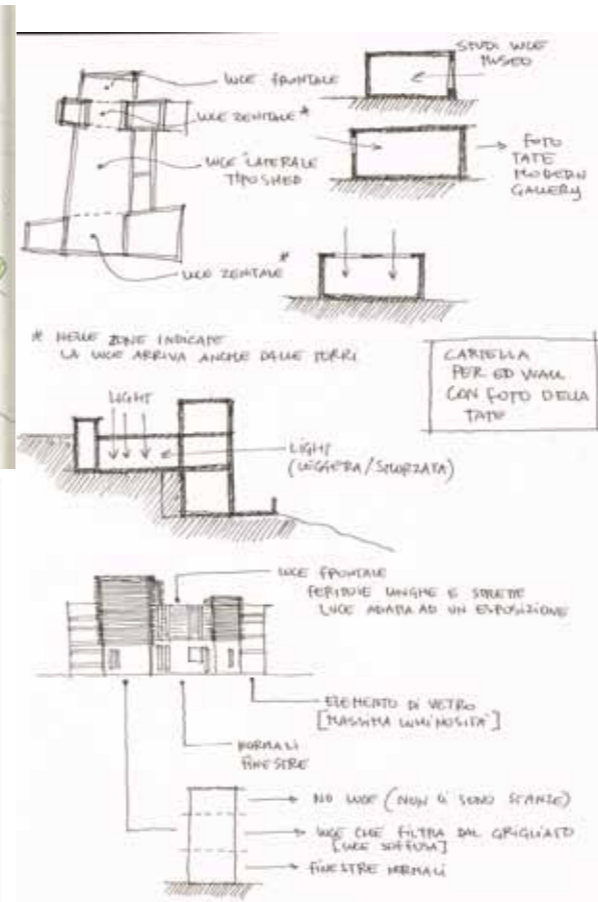 STUDI LUCE
MUSEO
LUCE FRONTALE
LUCE ZENITALE *
FOTO
TATE
MODERN
GALLERY
LUCE LATERALE
TIPO SHED
*
LUCE ZENITALE
* NELLE ZONE INDICATE
LA LUCE ARRIVA ANCHE DALLE TORRI
CARTELLA
PER ED WALL
CON FOTO DELLA
TATE
LIGHT
LIGHT
(LEGGERA/SMORZATA)
LUCE FRONTALE
FERITOIE LUNGHE E STRETTE
LUCE ADATTA AD UN ESPOSIZIONE
ELEMENTO DI VETRO
[MASSIMA LUMINOSITA']
NORMALI
FINESTRE
NO LUCE (NON CI SONO STANZE)
LUCE CHE FILTRA DAL GRIGLIATO
[LUCE SOFFUSA]
FINESTRE NORMALI